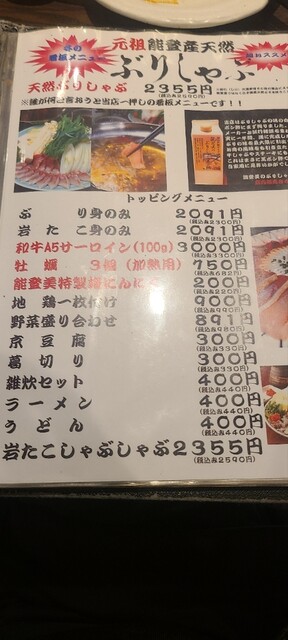 冬の
看板メニュー
元祖 能登産天然
超おススメ
ぶりしゃぶ
天然ぶりしゃぶ 2355円
(税込み2590円)
※誰が何と言おうと当店一押しの看板メニューです!!
トッピングメニュー
ぶり身のみ 2091円
(税込み2300円)
岩たこ身のみ 2091円
(税込み2300円)
和牛A5サーロイン(100g) 3000円
(税込み3300円)
牡蠣 3個(加熱用) 750円
能登美特製塩にんにく 200円
地鶏一枚付け 900円
野菜盛り合わせ 891円
(税込み980円)
京豆腐 300円
(税込み330円)
葛切り 300円
(税込み330円)
雑炊セット 400円
(税込み440円)
ラーメン 400円
(税込み440円)
うどん 400円
(税込み440円)
岩たこしゃぶしゃぶ 2355円
(税込み2590円)